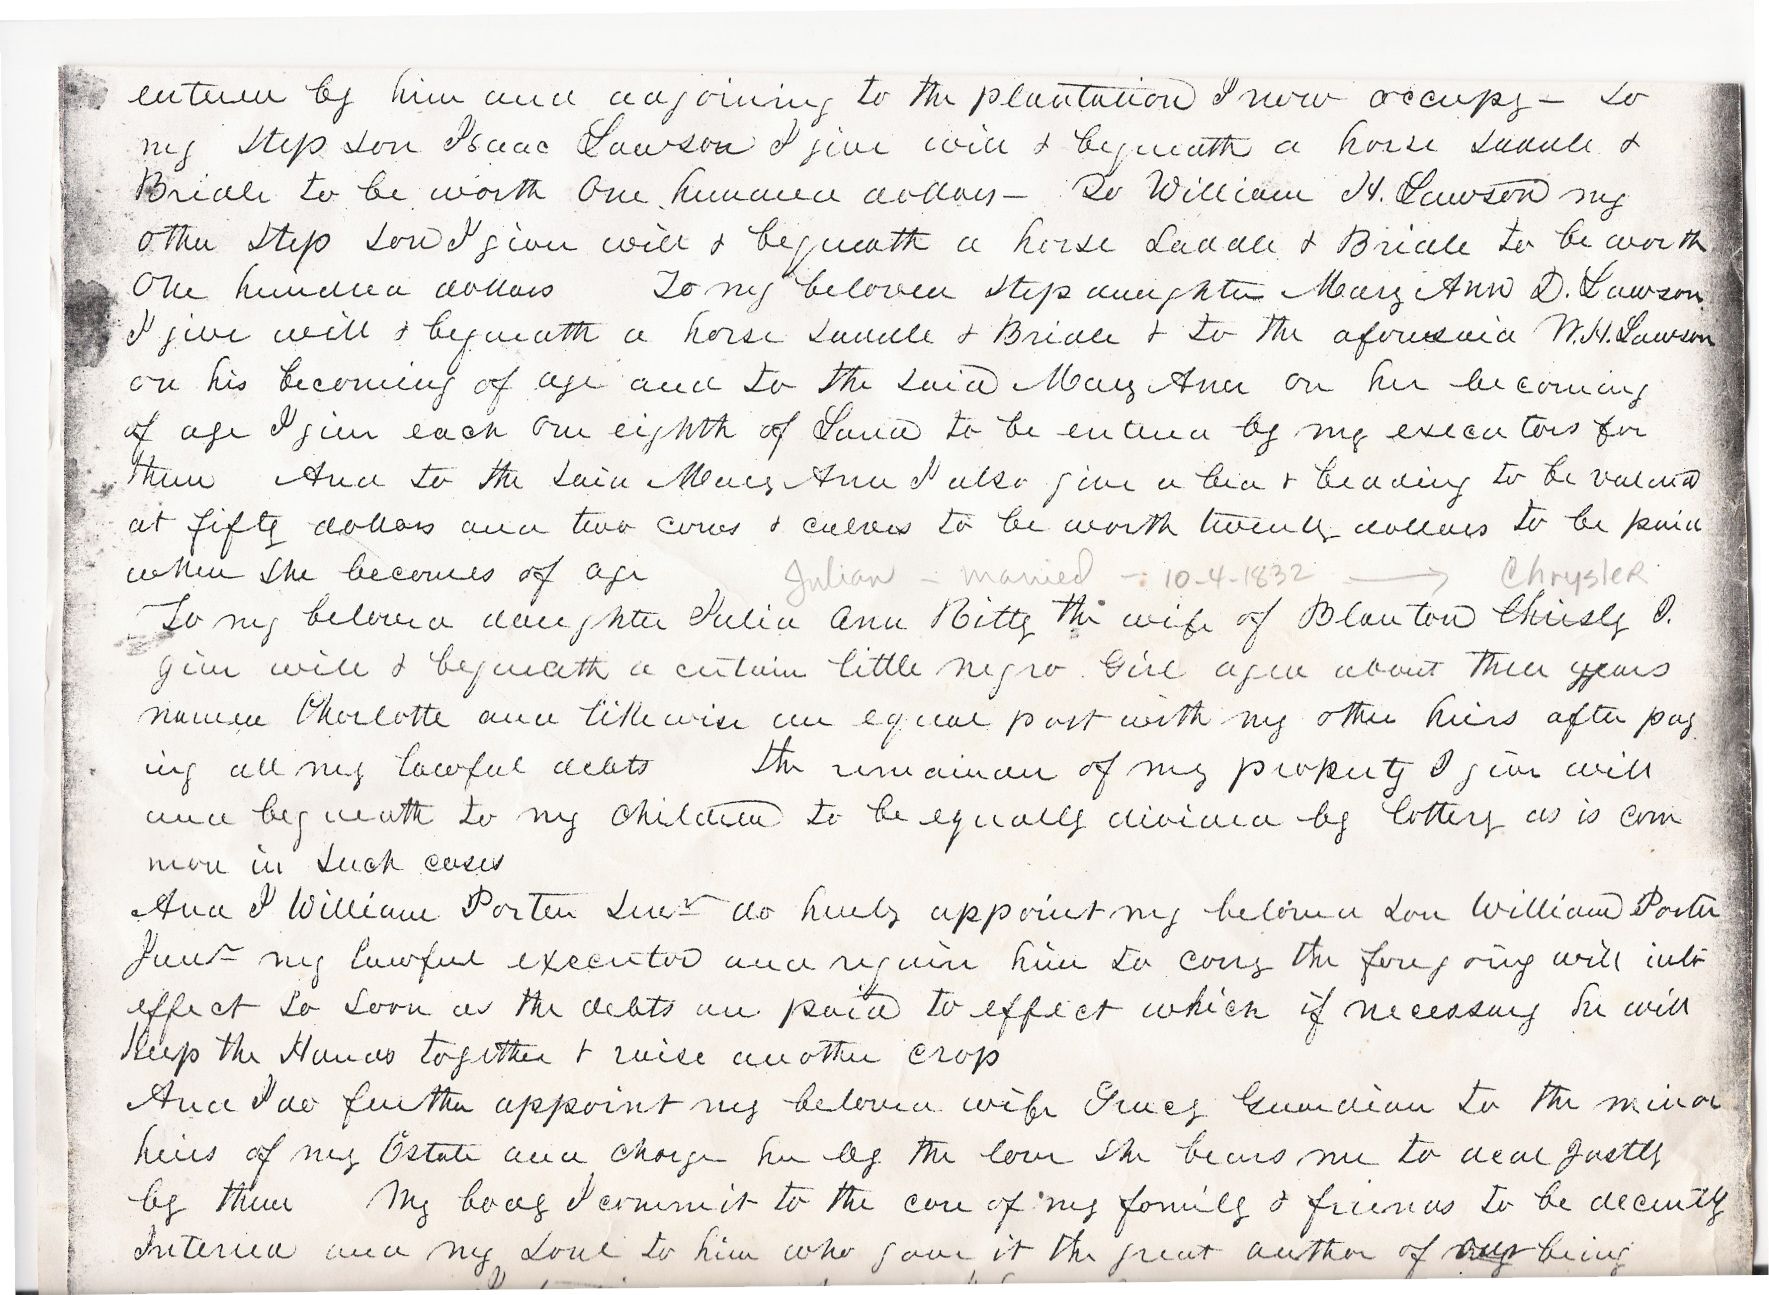 entered by him and adjoining to the plantation I now occupy – To
my Step son Isaac Lawson I give will & bequeath a horse saddle &
Bridle to be worth One hundred dollars – To William H. Lawson my
other Step son I give will & bequeath a horse saddle & Bridle to be worth
One hundred dollars To my beloved Step daughter Mary Ann D. Lawson
I give will & bequeath a horse saddle & Bridle & to the aforesaid W.H. Lawson
on his becoming of age and to the said Mary Ann on her becoming
of age I give each one eighth of Land to be entered by my executors for
them And to the said Mary Ann I also give a bed & beading to be valued
at fifty dollars and two cows & calves to be worth twenty dollars to be paid
when she becomes of age
Julian – married – 10-4-1832 → Chrysler
To my beloved daughter Julia Ann Kitty the wife of Blanton Chrisly I.
give will & bequeath a certain little negro Girl aged about three years
named Charlotte and likewise an equal part with my other heirs after pay
ing all my lawful debts the remainder of my property I give will
and bequeath to my children to be equally divided by lottery as is com
mon in such cases
And I William Porter Senr do hereby appoint my beloved son William Porter
Junr my lawful executor and require him to cary the foregoing will into
effect so soon as the debts are paid to effect which if necessary he will
Keep the Hands together & raise another crop
And I do further appoint my beloved wife Guardian to the minor
heirs of my Estate and charge her by the love she bears me to deal Justly
by them My body I commit to the care of my family & friends to be decently
Intered and my soul to him who gave it the great author of our being